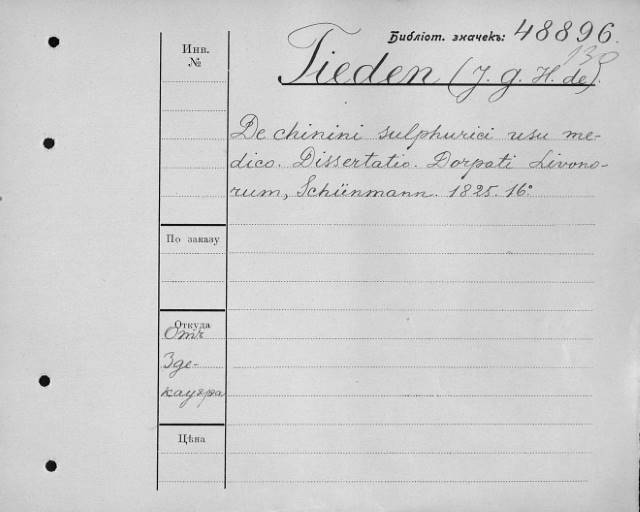 Библіот. значекъ: 48896.
130
Инв.
№
Tieden (J. g. H. de).
De chinini sulphurici usu me-
dico. Dissertatio. Dorpati Livono-
rum, Schünmann. 1825. 16°
По заказу
Откуда
Отъ
Зде-
кауэра
Цѣна